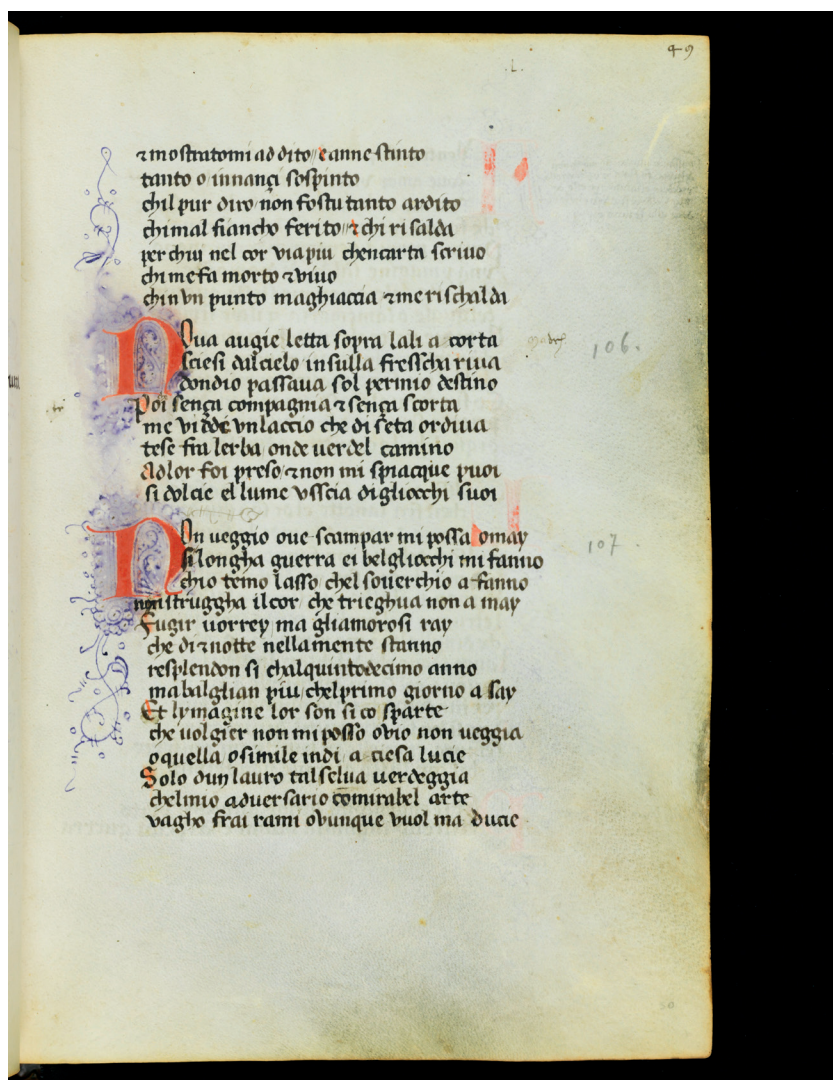 49
.L.
⁊ mostratomi ad dito // e anne stinto
tanto o innançi sospinto
chil pur diro non fostu tanto ardito
chi mal fiancho ferito // ⁊ chi risalda
per chui nel cor via piu chencarta scriuo
chi me fa morto ⁊ viuo
chin vn punto maghiaccia ⁊ me rischalda
NOua augieletta sopra lali a corta
sciesi dalcielo insulla fresscha riua
dondio passaua sol permio destino
106.
Poi sença compagnia ⁊ sença scorta
me vidde vnlaccio che di seta ordiua
tese fra lerba onde uerdel camino
Adlor foi preso ⁊ non mi spiacque puoi
si dolcie el lume vsscia digliocchi suoi
NOn ueggio oue scampar mi possa omay
107.
si longha guerra ei belgliocchi mi fanno
chio temo lasso chel souerchio a fanno
struggha il cor che trieghua non a may
Fugir uorrey ma gliamorosi ray
che di ⁊ notte nellamente stanno
resplendon si chalquintodecimo anno
mabalglian piu chelprimo giorno a say
Et lymagine lor son si co sparte
che uolgier non mi posso ouio non ueggia
oquella osimile indi a ciesa lucie
Solo dun lauro tal selua uerdeggia
chelmio aduersario cōmirabel arte
vagho frai rami ovunque vuol ma ducie